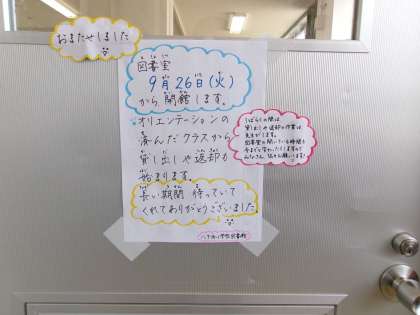 おまたせしました
図書室
9月26日(火)
から開館します。
オリエンテーションの
済んだクラスから
貸し出しや返却も
始まります。
長い期間 待っていて
くれてありがとうございました。
しばらくの間は
貸し出しや返却の作業は
図書室の開いている時間も
みなさん、協力お願いします!